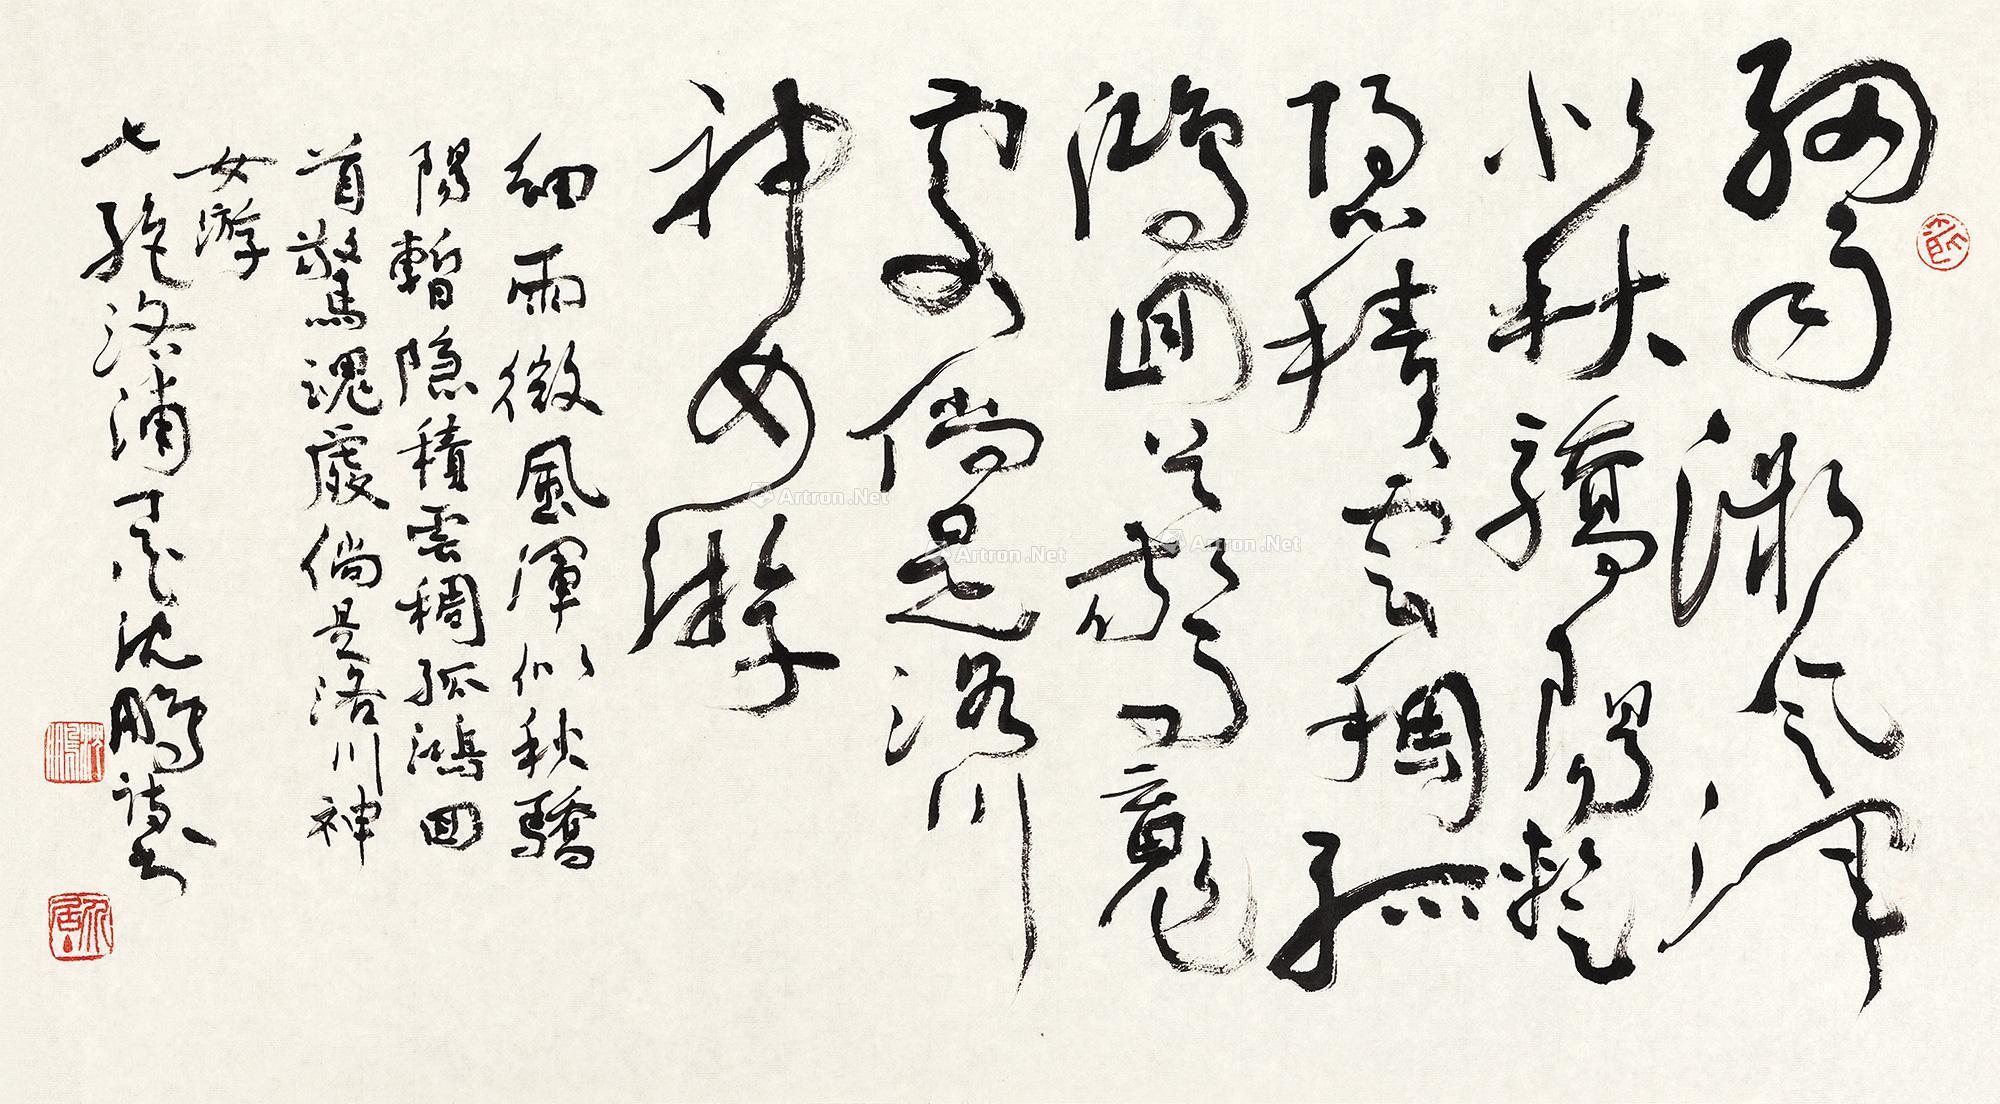 細雨微風渾
似秋驕陽暫
隐積雲稠孤
鴻囬首驚魂
處倘是洛川
神女游
細雨微風渾似秋驕
陽暫隐積雲稠孤鴻囬
首驚魂處倘是洛川神
女游
七絶洛浦丁亥沈鵬詩書
沈鵬
Artron.Net
Artron.Net
Artron.Net